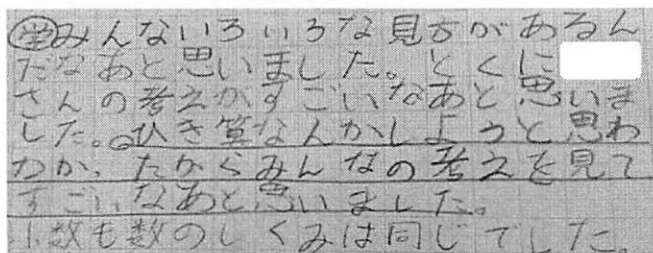 学みんないろいろな見方があるん
だなあと思いました。とくに
さんの考えがすごいなあと思いま
した。ひき算なんかしようと思わ
だからみんなの考えを見て
すごいなあと思いました。
小数も数のしくみは同じでした。